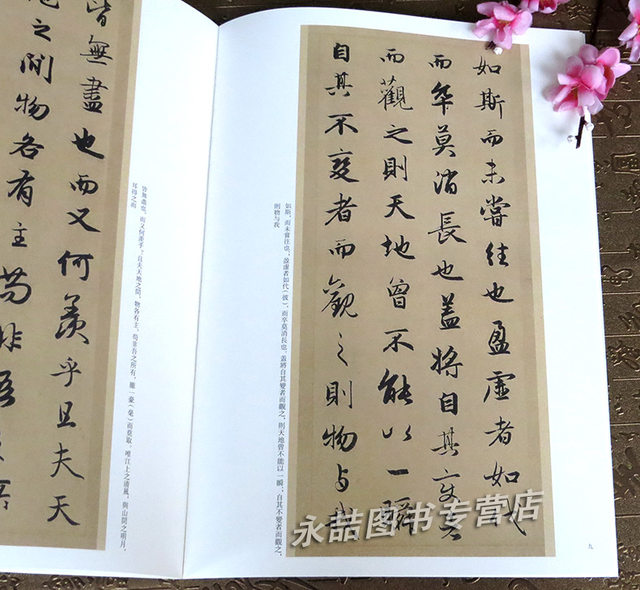 如斯而未嘗往也盈虛者如代
而卒莫消長也蓋將自其变者
而觀之則天地曾不能以一瞬
自其不變者而觀之則物与我
如斯，而未嘗往也；盈虛者如代（彼），而卒莫消長也。蓋將自其變者而觀之，則天地曾不能以一瞬；自其不變者而觀之，
則物与我
九
皆無盡也而又何羨乎且夫天
地之間物各有主苟非吾
皆無盡也，而又何羨乎？且夫天地之間，物各有主，苟非吾之所有，雖一豪（毫）而莫取。唯江上之清風，與山間之明月，
耳得之而
永喆图书专营店